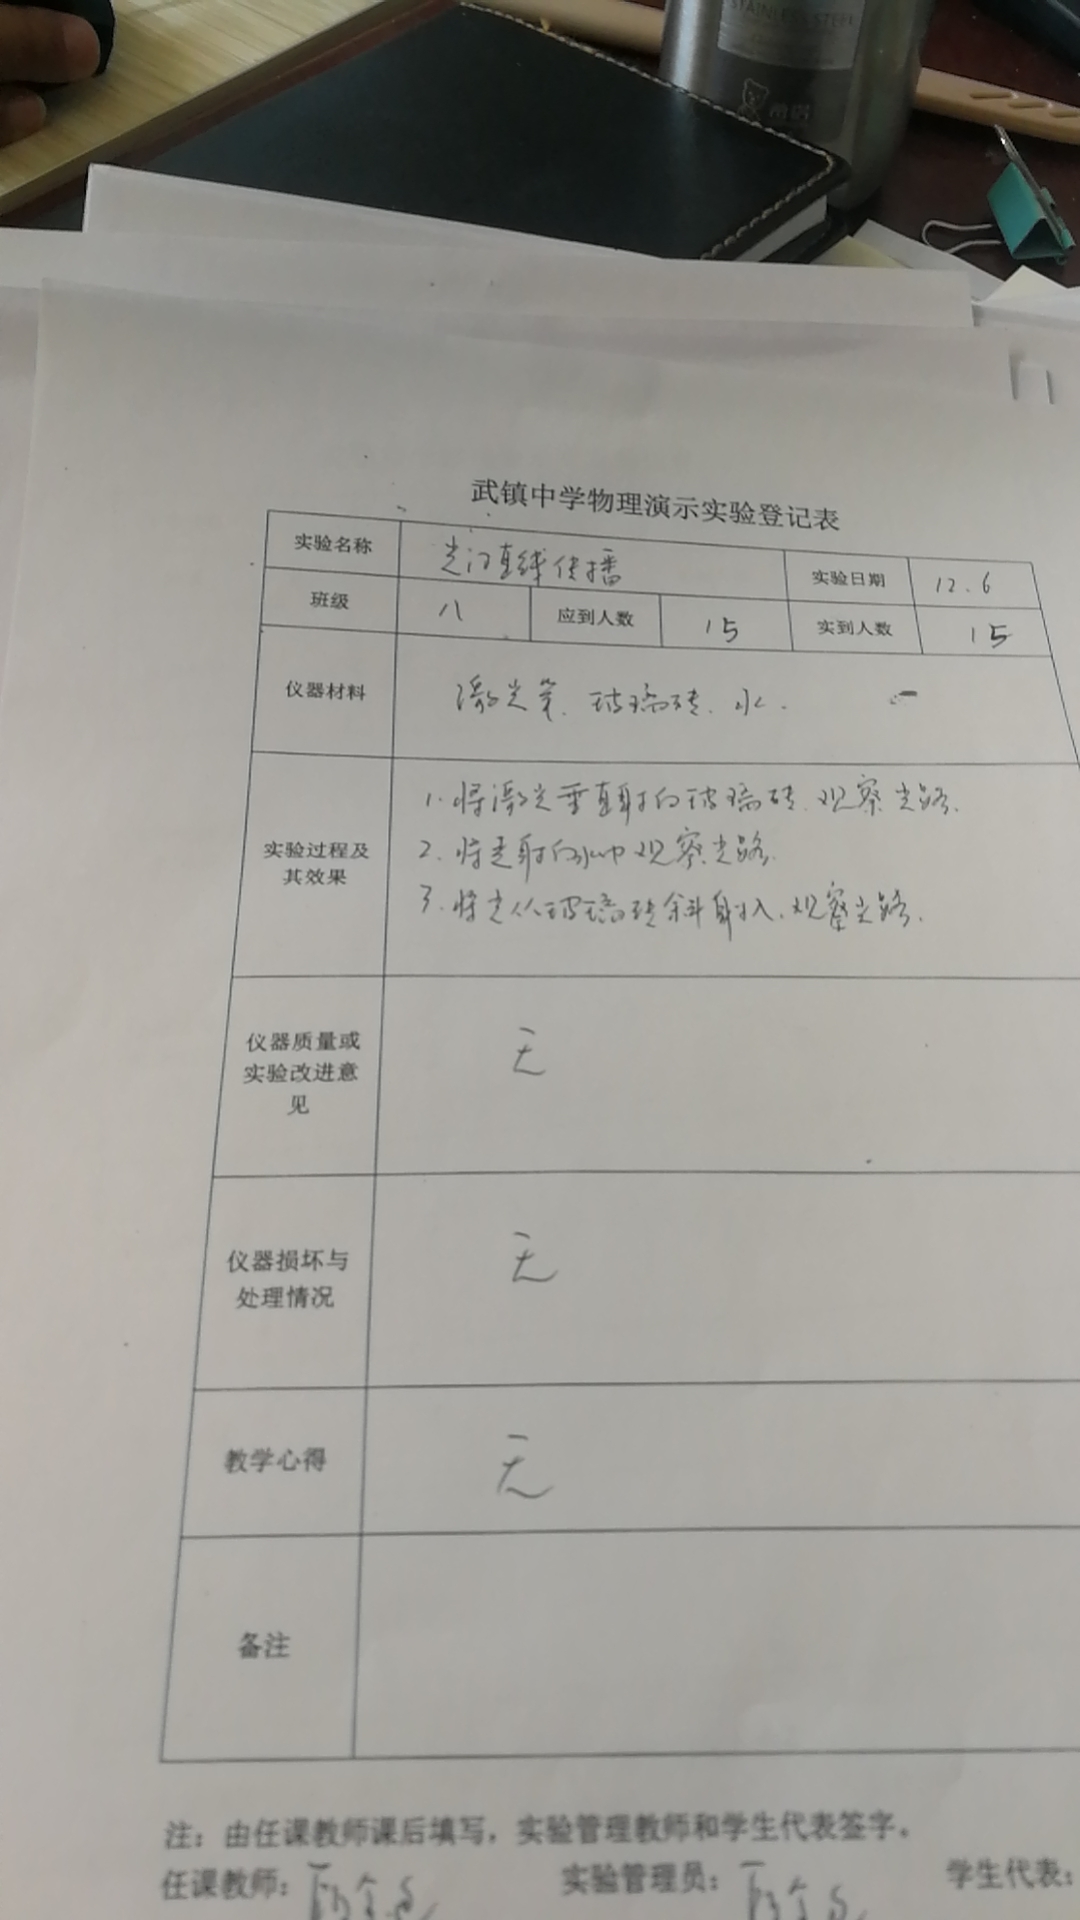 STAINLESS STEEL
武镇中学物理演示实验登记表
实验名称 光沿直线传播 实验日期 12.6
班级 八 应到人数 15 实到人数 15
仪器材料 激光笔、玻璃砖、水.
实验过程及
其效果
1.将激光垂直射向玻璃砖.观察光路.
2.将光射向水中观察光路.
3.将光从玻璃砖斜射入.观察光路.
仪器质量或
实验改进意
见
无
仪器损坏与
处理情况
无
教学心得 无
备注
注：由任课教师课后填写，实验管理教师和学生代表签字。
任课教师： 实验管理员： 学生代表：